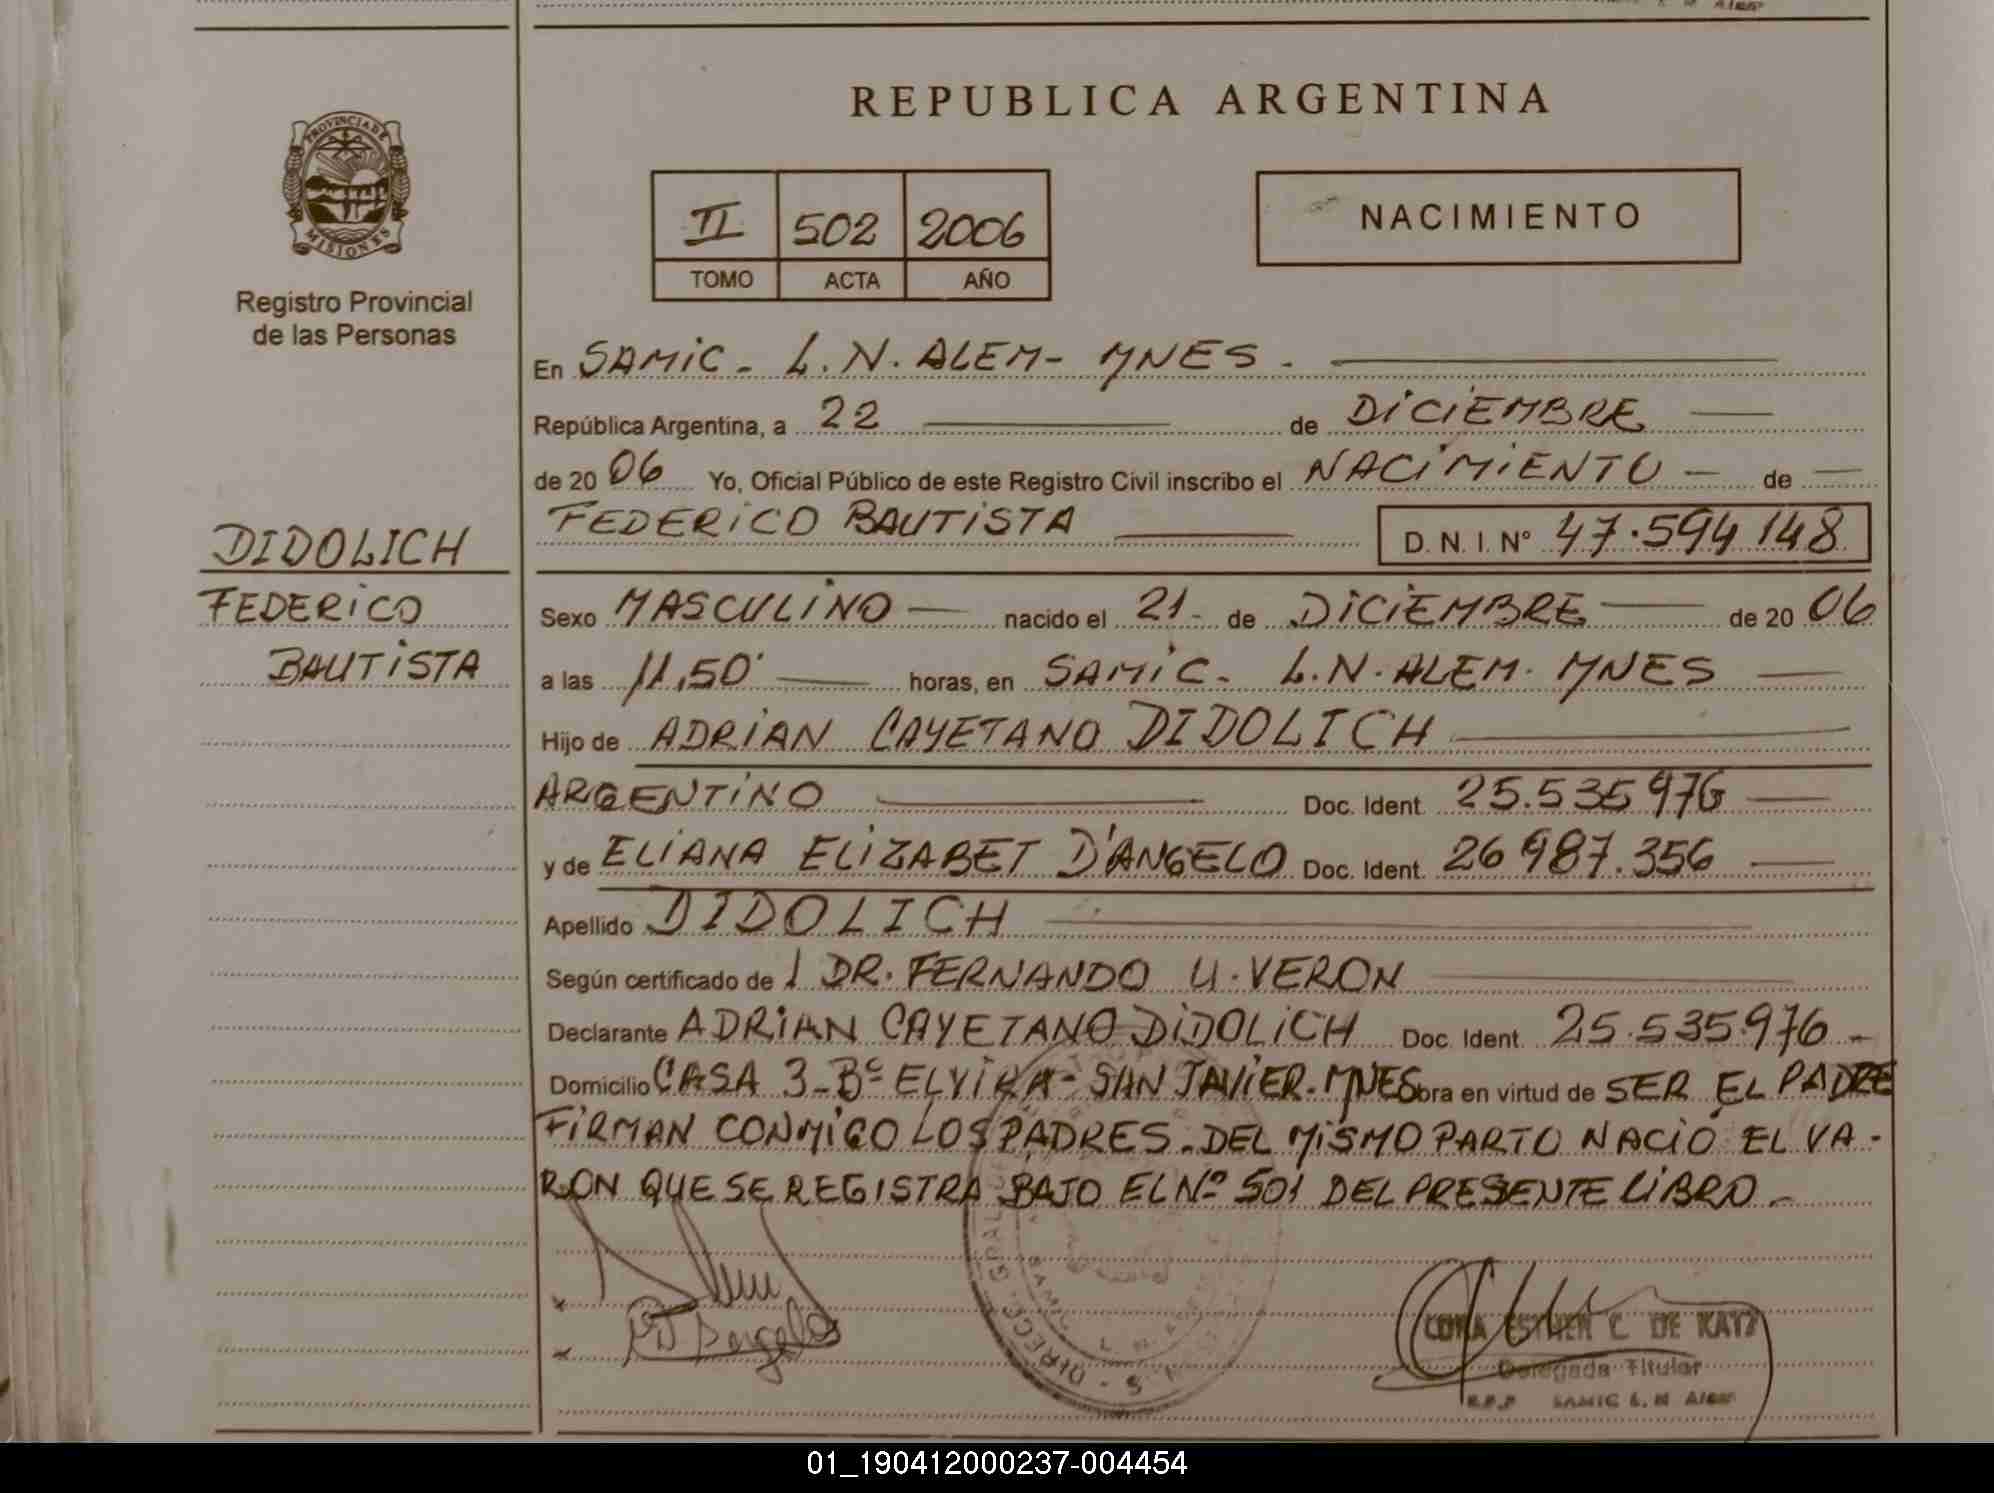 REPUBLICA ARGENTINA
PROVINCIA DE
MISIONES
Registro Provincial
de las Personas
II 502 2006
TOMO ACTA AÑO
NACIMIENTO
En SAMIC - L.N. ALEM - MNES -
República Argentina, a 22 de DICIEMBRE
de 2006 Yo, Oficial Público de este Registro Civil inscribo el NACIMIENTO de
FEDERICO BAUTISTA D.N.I. N° 47.594.148
DIDOLICH
FEDERICO
BAUTISTA
Sexo MASCULINO nacido el 21 de DICIEMBRE de 2006
a las 11,50 horas, en SAMIC - L.N. ALEM. MNES
Hijo de ADRIAN CAYETANO DIDOLICH
ARGENTINO Doc. Ident. 25.535.976
y de ELIANA ELIZABET D'ANGELO Doc. Ident. 26.987.356
Apellido DIDOLICH
Según certificado de DR. FERNANDO U. VERON
Declarante ADRIAN CAYETANO DIDOLICH Doc. Ident. 25.535.976 -
Domicilio CASA 3 - B° ELVIRA - SAN JAVIER - MNES Obra en virtud de SER EL PADRE
FIRMAN CONMIGO LOS PADRES. DEL MISMO PARTO NACIÓ EL VA-
RON QUE SE REGISTRA BAJO EL N° 501 DEL PRESENTE LIBRO.-
ESTHER C. DE KATZ
Delegada Titular
R.P.P SAMIC L. N Alem
01_190412000237-004454